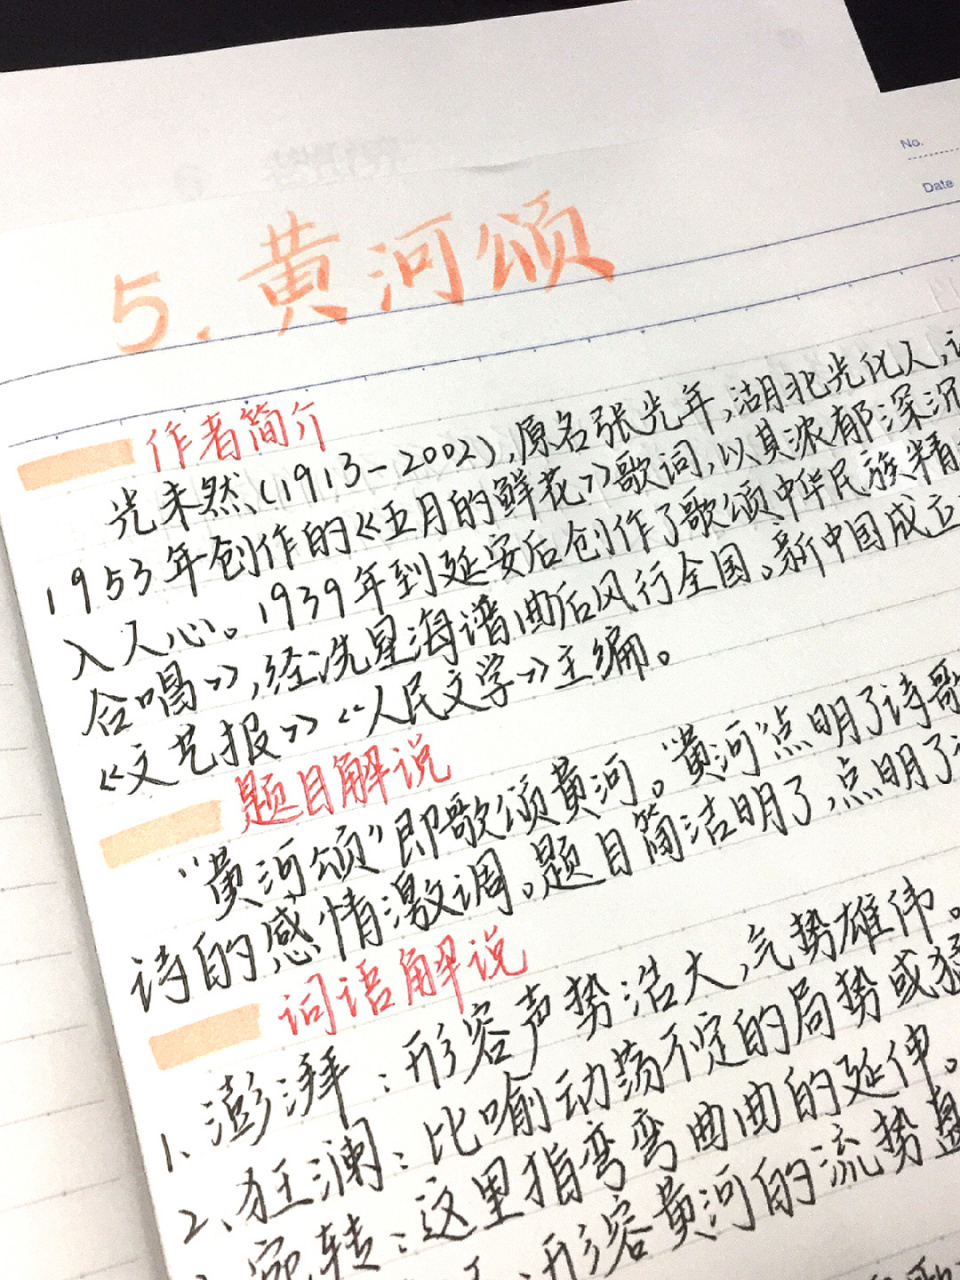 No.
Date
5. 黄河颂
作者简介
光未然(1913-2002),原名张光年,湖北光化人,
1953年创作的《五月的鲜花》歌词,以其浓郁深沉
入人心。1939年到延安后创作了歌颂中华民族精
合唱》,经冼星海谱曲后风行全国。新中国成立
《文艺报》《人民文学》主编。
题目解说
“黄河颂”即歌颂黄河。“黄河”点明了诗歌
诗的感情激调。题目简洁明了,点明了
词语解说
1、澎湃:形容声势浩大,气势雄伟。
2、狂澜:比喻动荡不定的局势或猛
宛转:这里指弯弯曲曲的延伸。
形容黄河的流势